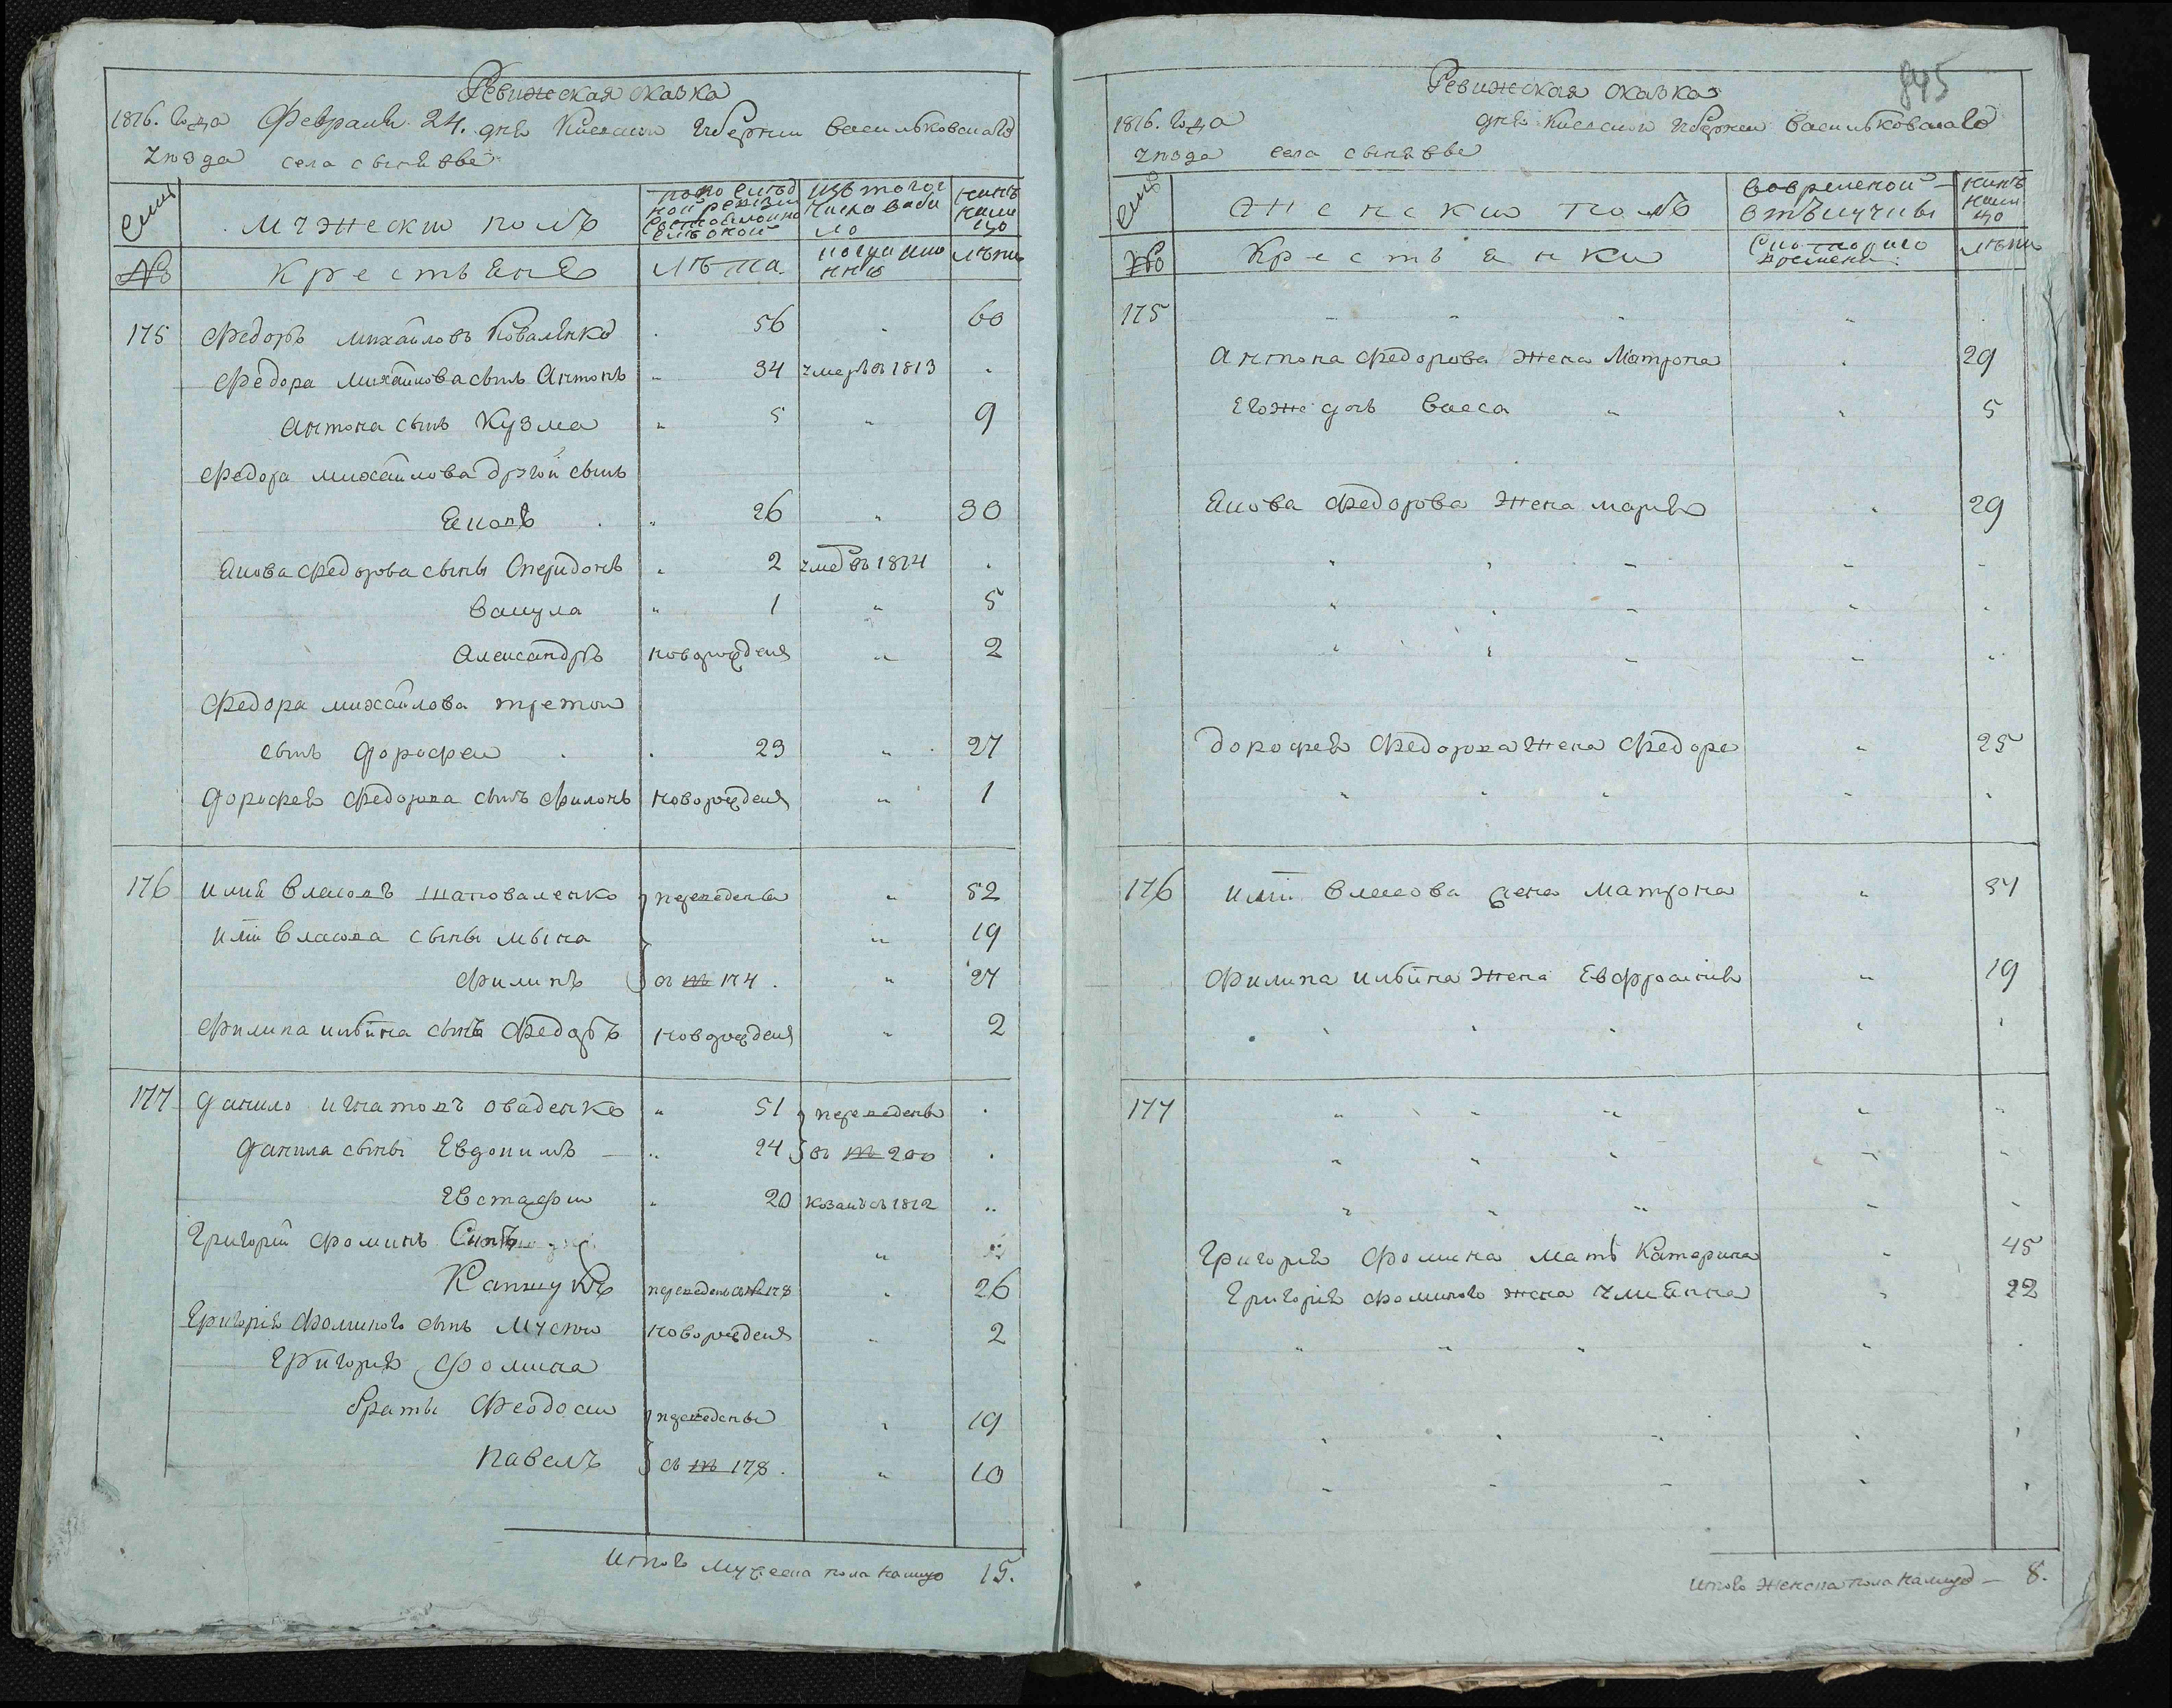 Ревижская сказка
1816. года Февраля 24. дня Киевской губернии васильковскаго
уѣзда села сыняввы
Семьи
Мужеской полъ
по последней ревизии состояло и после оной
изъ того числа выбыло
нынѣ на лицо
№
Крестьяне
лѣта
когда именно
лѣты
175 Федоръ михайловъ Коваленко 56 60
Федора михайлова сынъ Антонъ 34 умеръ въ 1813
Антона сынъ Кузма 5 9
Федора михайлова другой сынъ
Яковъ 26 30
Якова Федорова сыны Спиридонъ 2 умеръ въ 1814
вакула 1 5
Александръ новорожденъ 2
Федора михайлова третои
сынъ дорофеи 23 27
дорофея Федорова сынъ Филонъ новорожденъ 1
176 илия власовъ шаповаленко переведены 52
илии власова сыны мына 19
Филипъ съ № 174. 27
Филипа ильина сынъ Федоръ новорожденъ 2
177 данило игнатовъ оваденко 51 переведены
данила сыны Евдокимъ 24 въ № 200
Евстафии 20 козакъ съ 1812
Григорий фоминъ
Капшукъ переведенъ съ № 178 26
Григория Фоминого сынъ Мусии новорожденъ 2
Григория фомина
браты Феодоси переведены 19
павелъ съ № 178. 10
Итого Мужеска пола налицо 15.
845
Ревижская сказка
1816. года дня Киевской губернии васильковскаго
уѣзда села сыняввы
Семьи
Женской полъ
во временной отлучкѣ
нынѣ на лицо
№
Крестьянки
Съ котораго времени
лѣты
175
Антона Федорова жена Матрона 29
Егоже дочь васса 5
Якова Федорова жена мария 29
дорофея Федорова жена Федора 25
176 илии власова жена матрона 51
Филипа ильина жена Евфросиния 19
177
Григория Фомина мать Катерина 45
Григория Фоминого жена улияна 22
Итого женска пола налицо — 8.